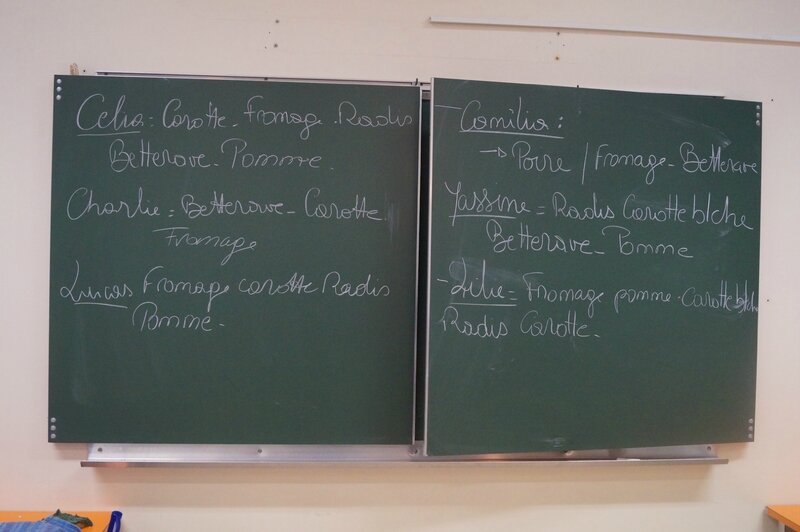 Celia = Carotte - Fromage - Radis
Betterave - Pomme.
Charlie = Betterave - Carotte
Fromage
Lucas Fromage carotte Radis
Pomme -
- Camilia :
→ Poire / Fromage - Betterave
Yassine = Radis Carotte blche
Betterave - Pomme
- Lilie = Fromage pomme - Carotte blche
Radis Carotte.